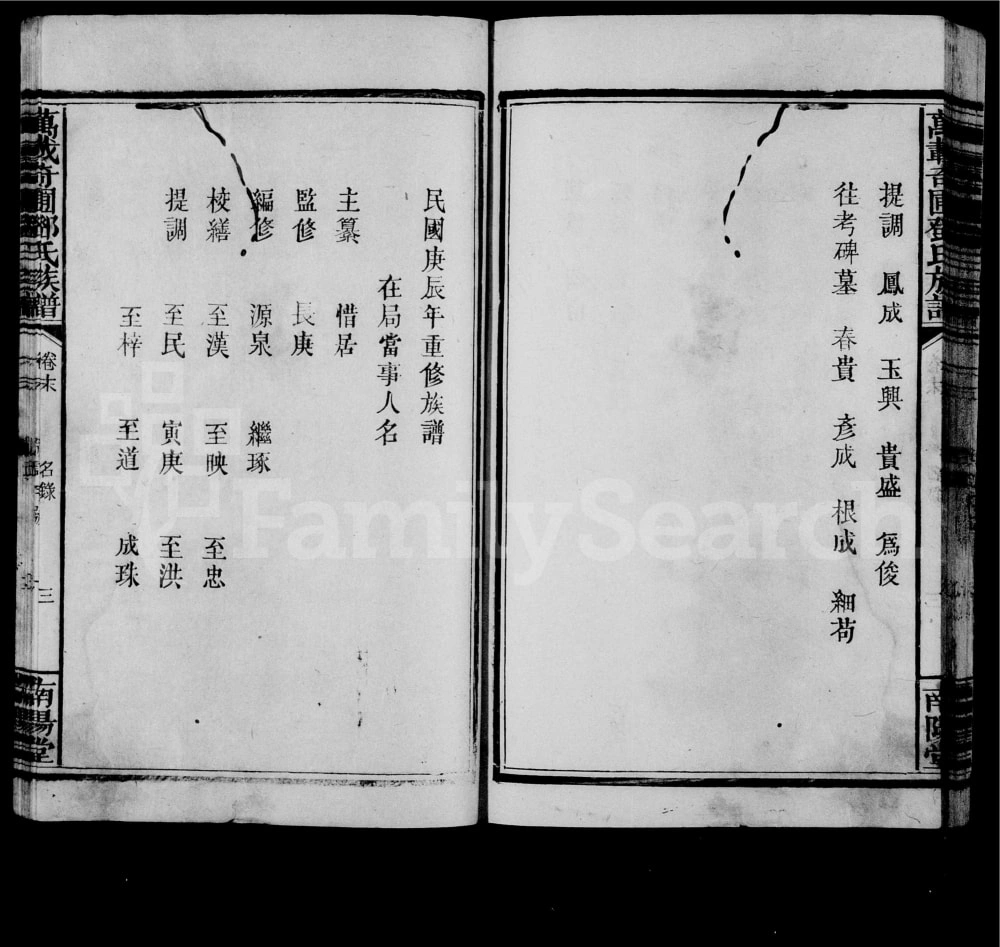 提調 鳳成 玉興 貴盛 爲俊
往考碑墓 春貴 彥成 根成 細苟
民國庚辰年重修族譜
在局當事人名
主纂 惜居
監修 長庚
編修 源泉 繼琢
校繕 至漢 至映 至忠
提調 至民 寅庚 至洪
至梓 至道 成珠
鄧氏族譜
卷末
名錄
三
南陽堂
FamilySearch